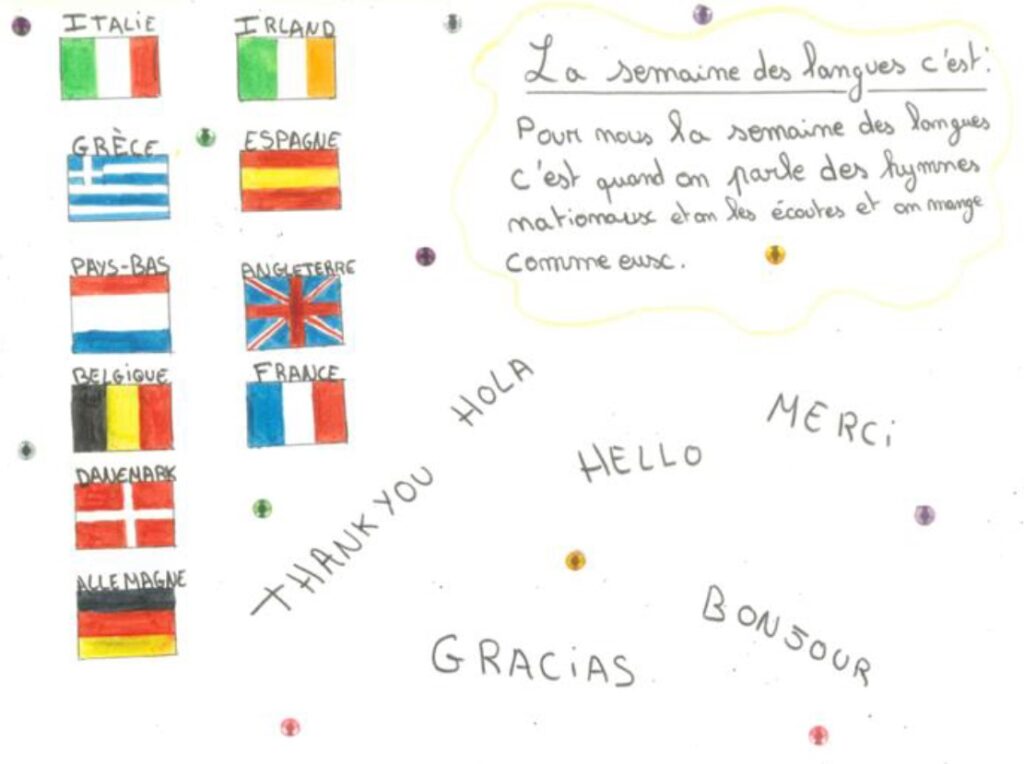 ITALIE
IRLAND
GRÈCE
ESPAGNE
PAYS-BAS
ANGLETERRE
BELGIQUE
FRANCE
DANEMARK
ALLEMAGNE
La semaine des langues c'est:
Pour nous la semaine des langues
c'est quand on parle des hymnes
nationaux et on les écoutes et on mange
comme eux.
HOLA
MERCi
HELLO
THANK YOU
BONJOUR
GRACiAS